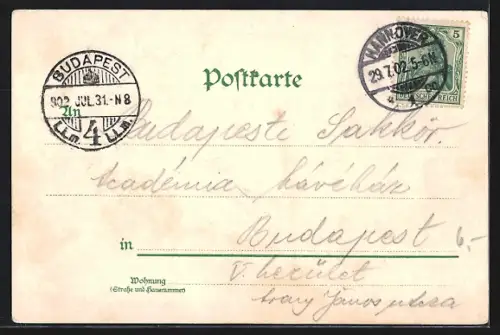 BUDAPEST
902 JUL.31.-N8
4
HANNOVER
29.7.02.5-6N.
5
REICH
Postkarte
An
Budapesti Sakkör.
Académia kávéház
in Budapest 6,-
V. kerület
Arany János utca
Wohnung
(Straße und Hausnummer)